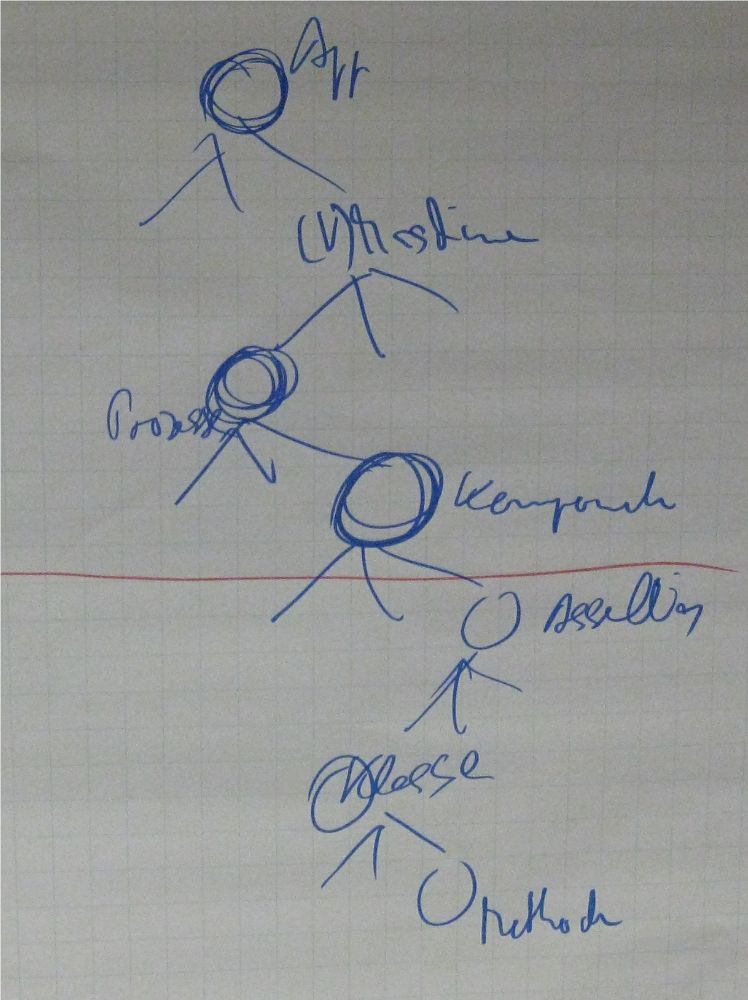 App
(V)Maschine
Prozess
Komponente
Assembly
Klasse
Methode